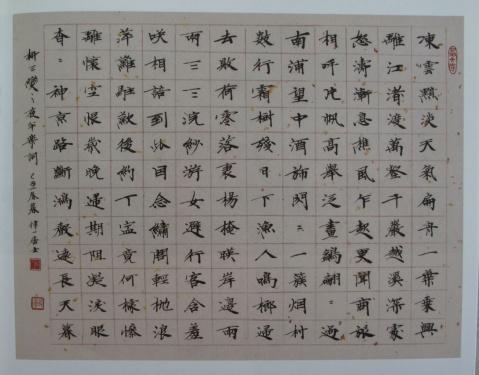 凍雲黯淡天氣扁舟一葉乘興
離江渚渡萬壑千巖越溪深處
怒濤漸息樵風乍起更聞商旅
相呼片帆高舉泛畫鷁翩〻過
南浦望中酒旆閃〻一簇烟村
數行霜樹殘日下漁人鳴榔歸
去敗荷零落衰楊掩映岸邊兩
兩三三浣紗游女避行客含羞
咲相語到此因念繡閣輕抛浪
萍難駐歎後約丁寧竟何據慘
離懷空恨歲晚歸期阻凝淚眼
杳〻神京路斷鴻聲遠長天暮
柳三變之夜半樂詞 春暮